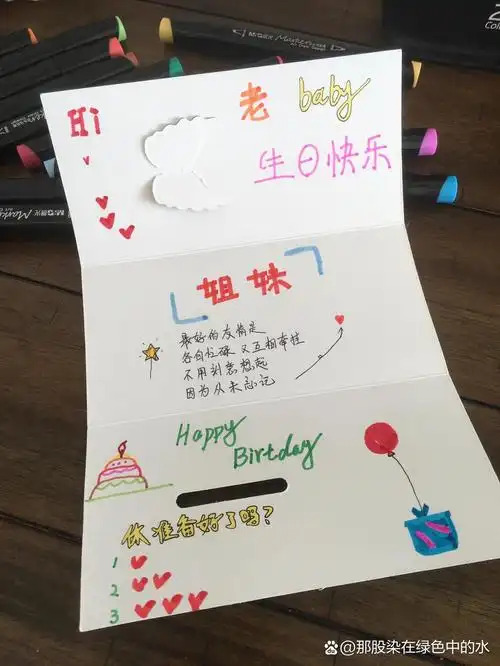 Hi 老 baby
生日快乐
姐妹
最好的友情是
各自忙碌 又互相牵挂
不用刻意想起
因为从未忘记
Happy
Birtday
你准备好了吗?
1
2
3
Marker
@那股染在绿色中的水